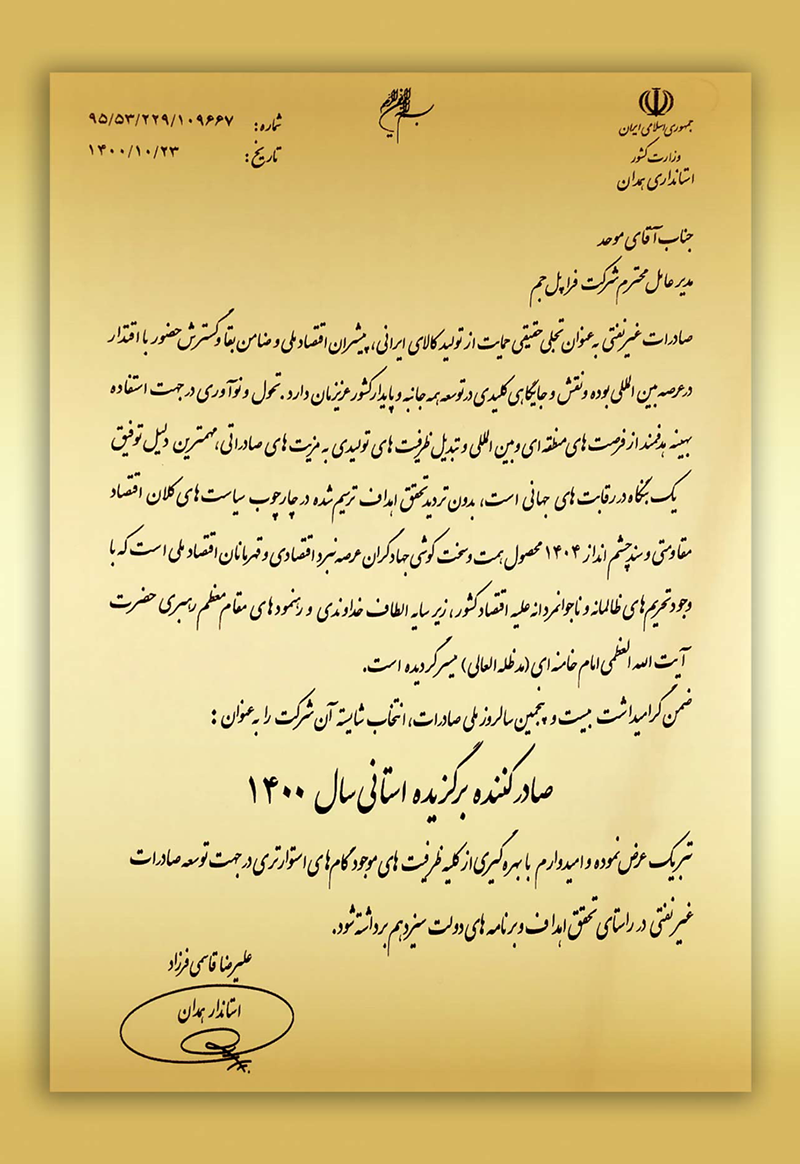 بسم الله الرحمن الرحیم
جمهوری اسلامی ایران
وزارت کشور
استانداری همدان
شماره: ۹۵/۵۳/۲۲۹/۱۰۹۶۶۷
تاریخ: ۱۴۰۰/۱۰/۲۳
جناب آقای موحد
مدیر عامل محترم شرکت فراپل جم
صادرات غیرنفتی به عنوان تجلی حقیقی حمایت از تولید کالای ایرانی، پیشران اقتصاد ملی و ضامن بقا و گسترش حضور با اقتدار
در عرصه بین المللی بوده و نقش و جایگاهی کلیدی در توسعه همه جانبه و پایدار کشور عزیزمان دارد. تحول و نوآوری در جهت استفاده
بهینه هدفمند از فرصت های منطقه ای و بین المللی و تبدیل ظرفیت های تولیدی به مزیت های صادراتی، مهمترین دلیل توفیق
یک بنگاه در رقابت های جهانی است، بدون تردید تحقق اهداف ترسیم شده در چارچوب سیاست های کلان اقتصاد
مقاومتی و سند چشم انداز ۱۴۰۴ محصول همت و سخت کوشی جهادگران عرصه نبرد اقتصادی و قهرمانان اقتصاد ملی است که با
وجود تحریم های ظالمانه و ناجوانمردانه علیه اقتصاد کشور، زیر سایه الطاف خداوندی و رهنمود های مقام معظم رهبری حضرت
آیت الله العظمی امام خامنه ای (مدظله العالی) میسر گردیده است.
ضمن گرامیداشت بیست و پنجمین سالروز ملی صادرات، انتخاب شایسته آن شرکت را به عنوان :
صادر کننده برگزیده استانی سال ۱۴۰۰
تبریک عرض نموده و امیدوارم با بهره گیری از کلیه ظرفیت های موجود گام های استوارتری در جهت توسعه صادرات
غیر نفتی در راستای تحقق اهداف و برنامه های دولت سیزدهم برداشته شود.
علیرضا قاسمی فرزاد
استاندار همدان